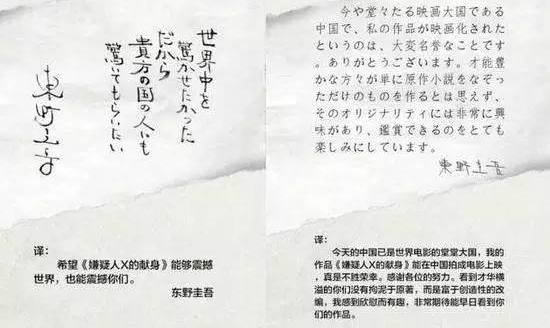 世界中を
驚かせたかった
だから
貴方の国の人にも
驚いてもらいたい
東野圭吾
译：
希望《嫌疑人X的献身》能够震撼
世界，也能震撼你们。
东野圭吾
今や堂々たる映画大国である
中国で、私の作品が映画化された
というのは、大変名誉なことです
。ありがとうございます。才能豊
かな方々が単に原作小説をなぞっ
ただけのものを作るとは思えず、
そのオリジナリティには非常に興
味があり、鑑賞できるのをとても
楽しみにしています。
東野圭吾
译：
今天的中国已是世界电影的堂堂大国，我的
作品《嫌疑人X的献身》能在中国拍成电影上映
，真是不胜荣幸。感谢各位的努力。看到才华横
溢的你们没有拘泥于原著，而是富于创造性的改
编，我感到欣慰而有趣，非常期待能早日看到你
们的作品。